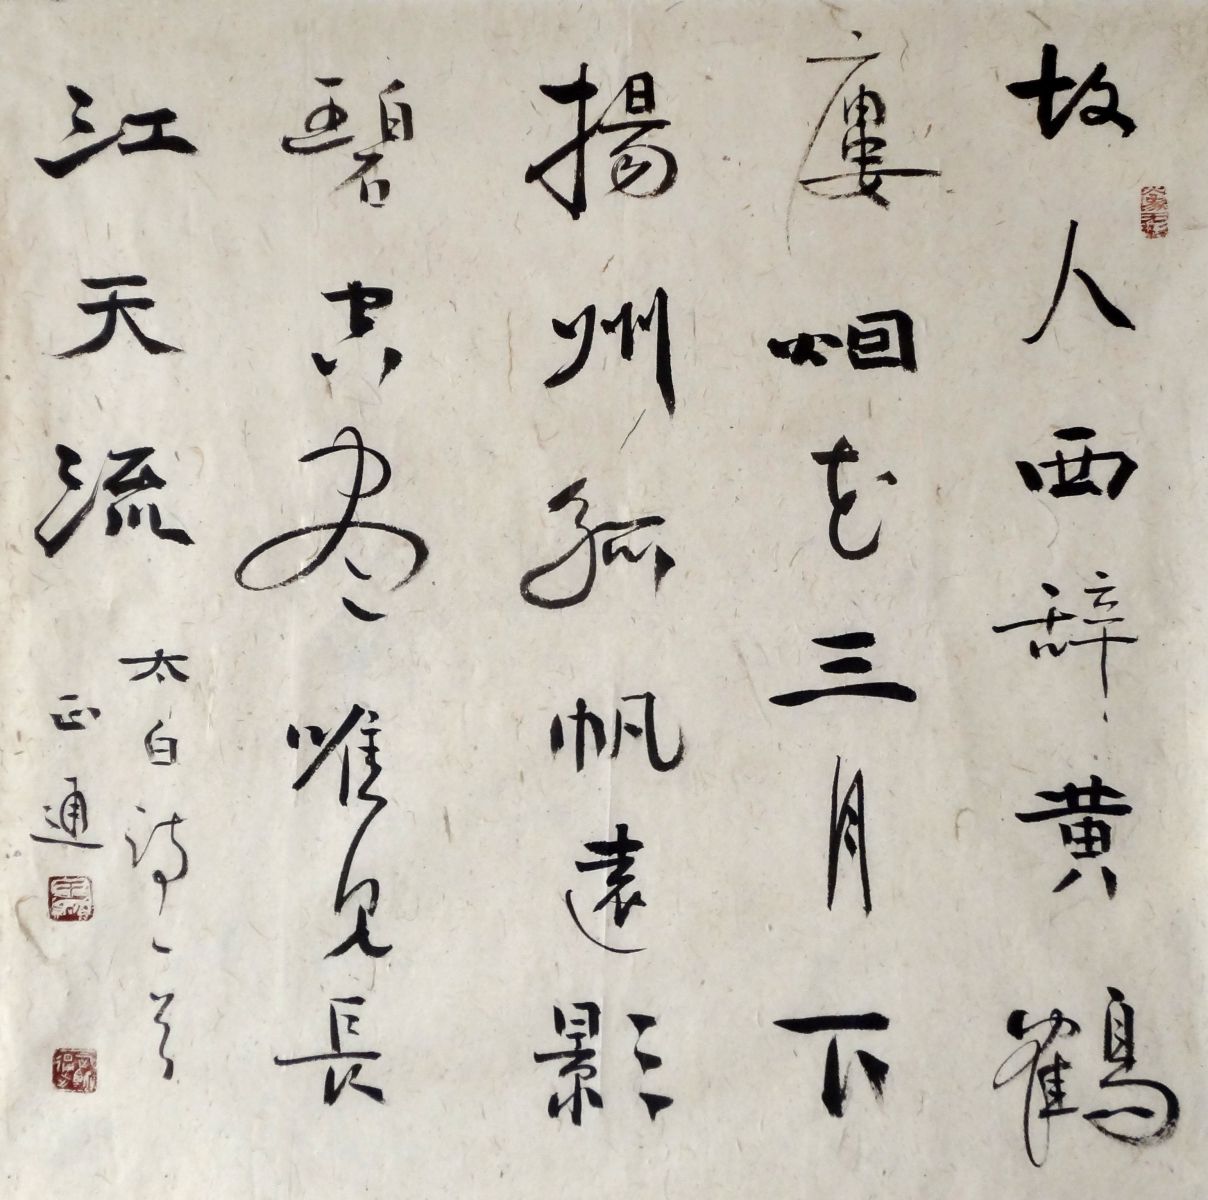 故人西辭黃鶴
廔烟花三月下
揚州孤帆遠影
碧空盡唯見長
江天流
太白詩一首
正通